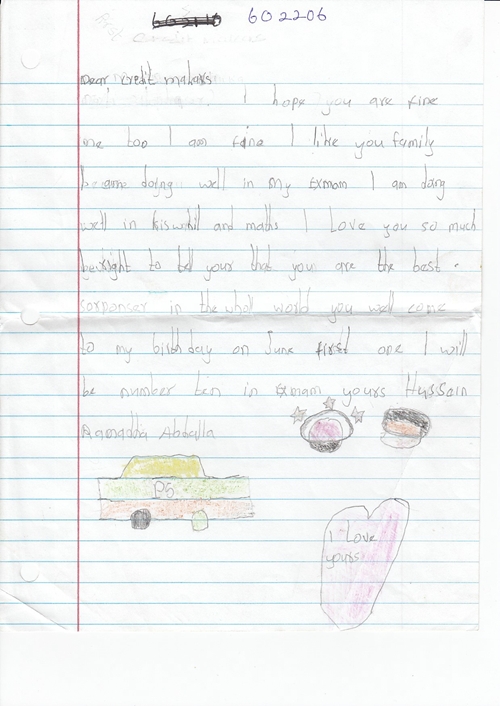 602206
Dear, credit makars
I hope you are fine
me too I am fine I like you family
became doing well in my Exmam I am doing
well in kiswhil and maths I Love you so much
to tell your that you are the best.
sorponcer in the wholl world you well come
to my birthday on June first one I will
be number ten in Exmam yours Hussein
Abdalla
P5
I Love
yours